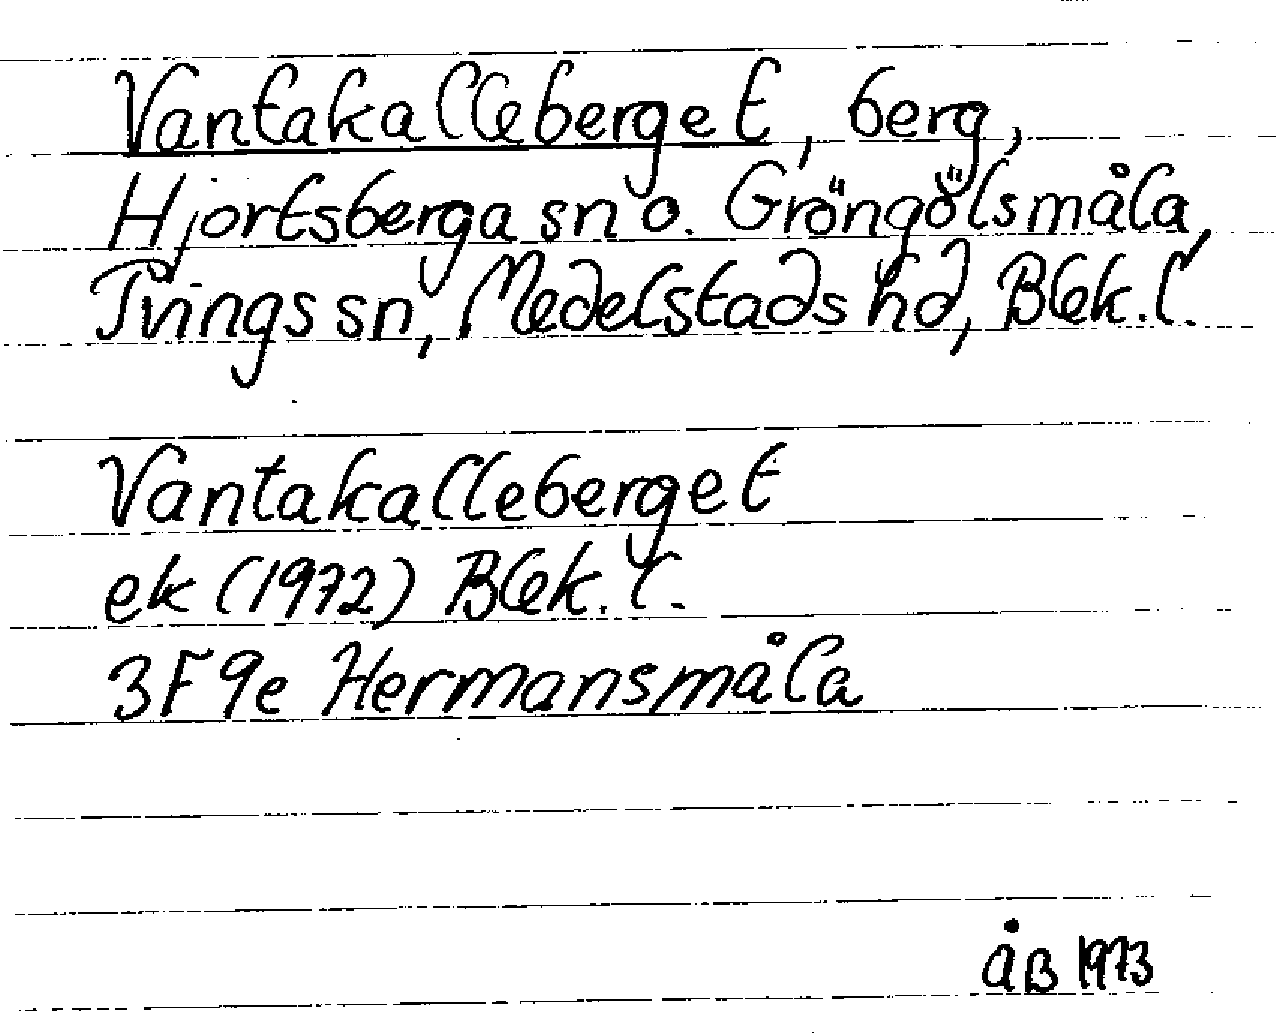 Vantakalleberget, berg,
Hjortsberga sn o. Gröngölsmåla,
Tvings sn, Medelstads hd, Blek. l.
Vantakalleberget
ek (1972) Blek. l.
3F 9e Hermansmåla
ÅB 1973